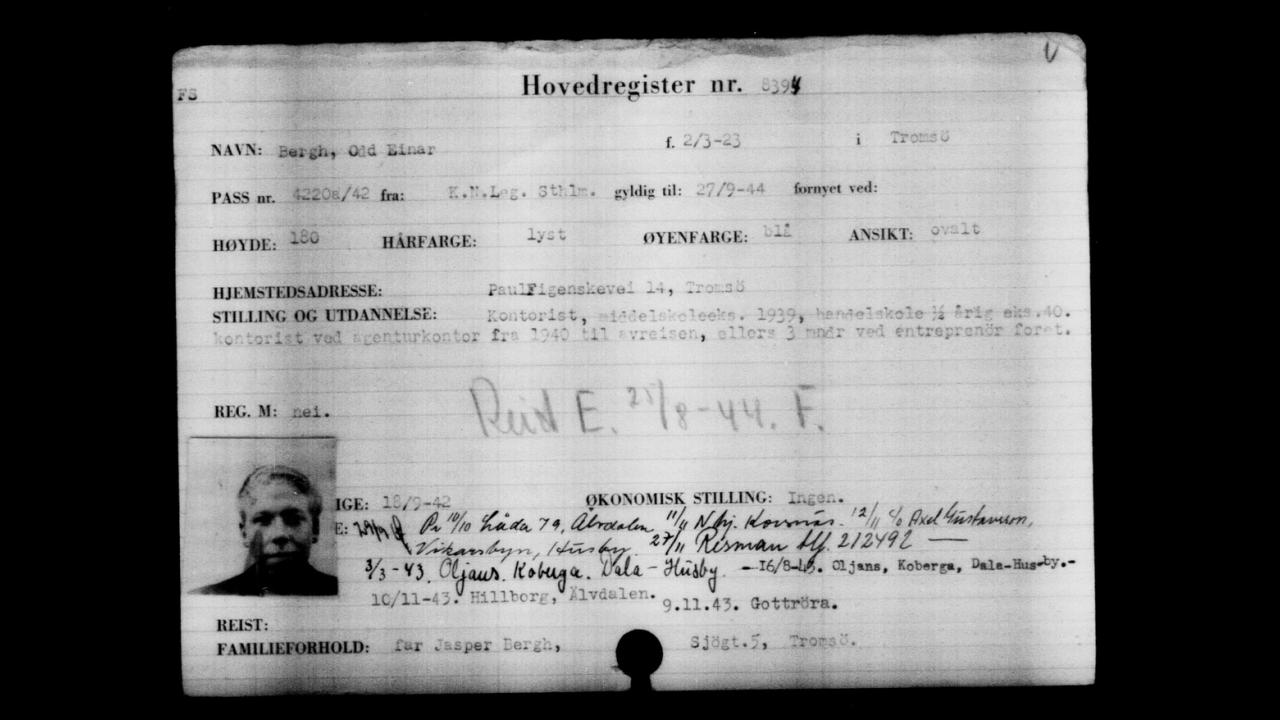 V
Hovedregister nr. 8394
FS
NAVN: Bergh, Odd Einar f. 2/3-23 i Tromsö
PASS nr. 4220a/42 fra: K.N.Leg. Sthlm. gyldig til: 27/9-44 fornyet ved:
HØYDE: 180 HÅRFARGE: lyst ØYENFARGE: blå ANSIKT: ovalt
HJEMSTEDSADRESSE: Paul Figenskevei 14, Tromsö
STILLING OG UTDANNELSE: Kontorist, middelskoleeks. 1939, handelskole ½ årig eks.40.
kontorist ved agenturkontor fra 1940 til avreisen, ellers 3 mndr ved entreprenör foret.
REG. M: nei.
Reist E. 25/8-44. F.
IGE: 18/9-42 ØKONOMISK STILLING: Ingen.
E: 29/9 Pr 10/10 Låda 79, Älvdalen 11/11 N bj. Korsnäs. 12/11 c/o Axel Gustavsson,
Vikarsbyn, Husby. 27/11 Risman tlf. 212492 —
3/3-43. Oljans. Koberga. Dala-Husby. — 16/8-43. Oljans, Koberga, Dala-Husby.-
10/11-43. Hillborg, Älvdalen. 9.11.43. Gottröra.
REIST:
FAMILIEFORHOLD: far Jasper Bergh, Sjögt.5, Tromsö.